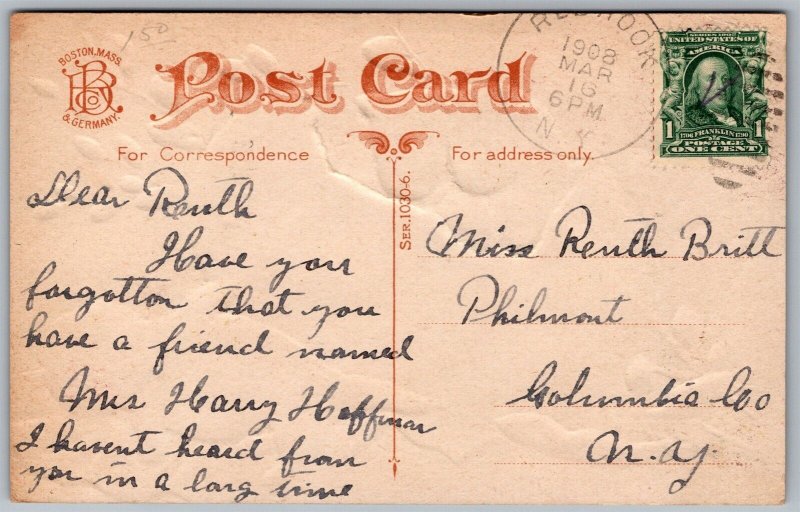 150
BOSTON, MASS.
BRCo
& GERMANY.
Post Card
RED HOOK
1908
MAR
16
6 PM
N.Y.
SERIES 1902
UNITED STATES OF
AMERICA
1 1706 FRANKLIN 1790 1
POSTAGE
ONE CENT
For Correspondence
For address only.
SER. 1030-6.
Dear Reuth
Have you
forgotton that you
have a friend named
Mrs Harry Hoffman
I havent heard from
you in a long time
Miss Reuth Britt
Philmont
Columbia Co
N.Y.